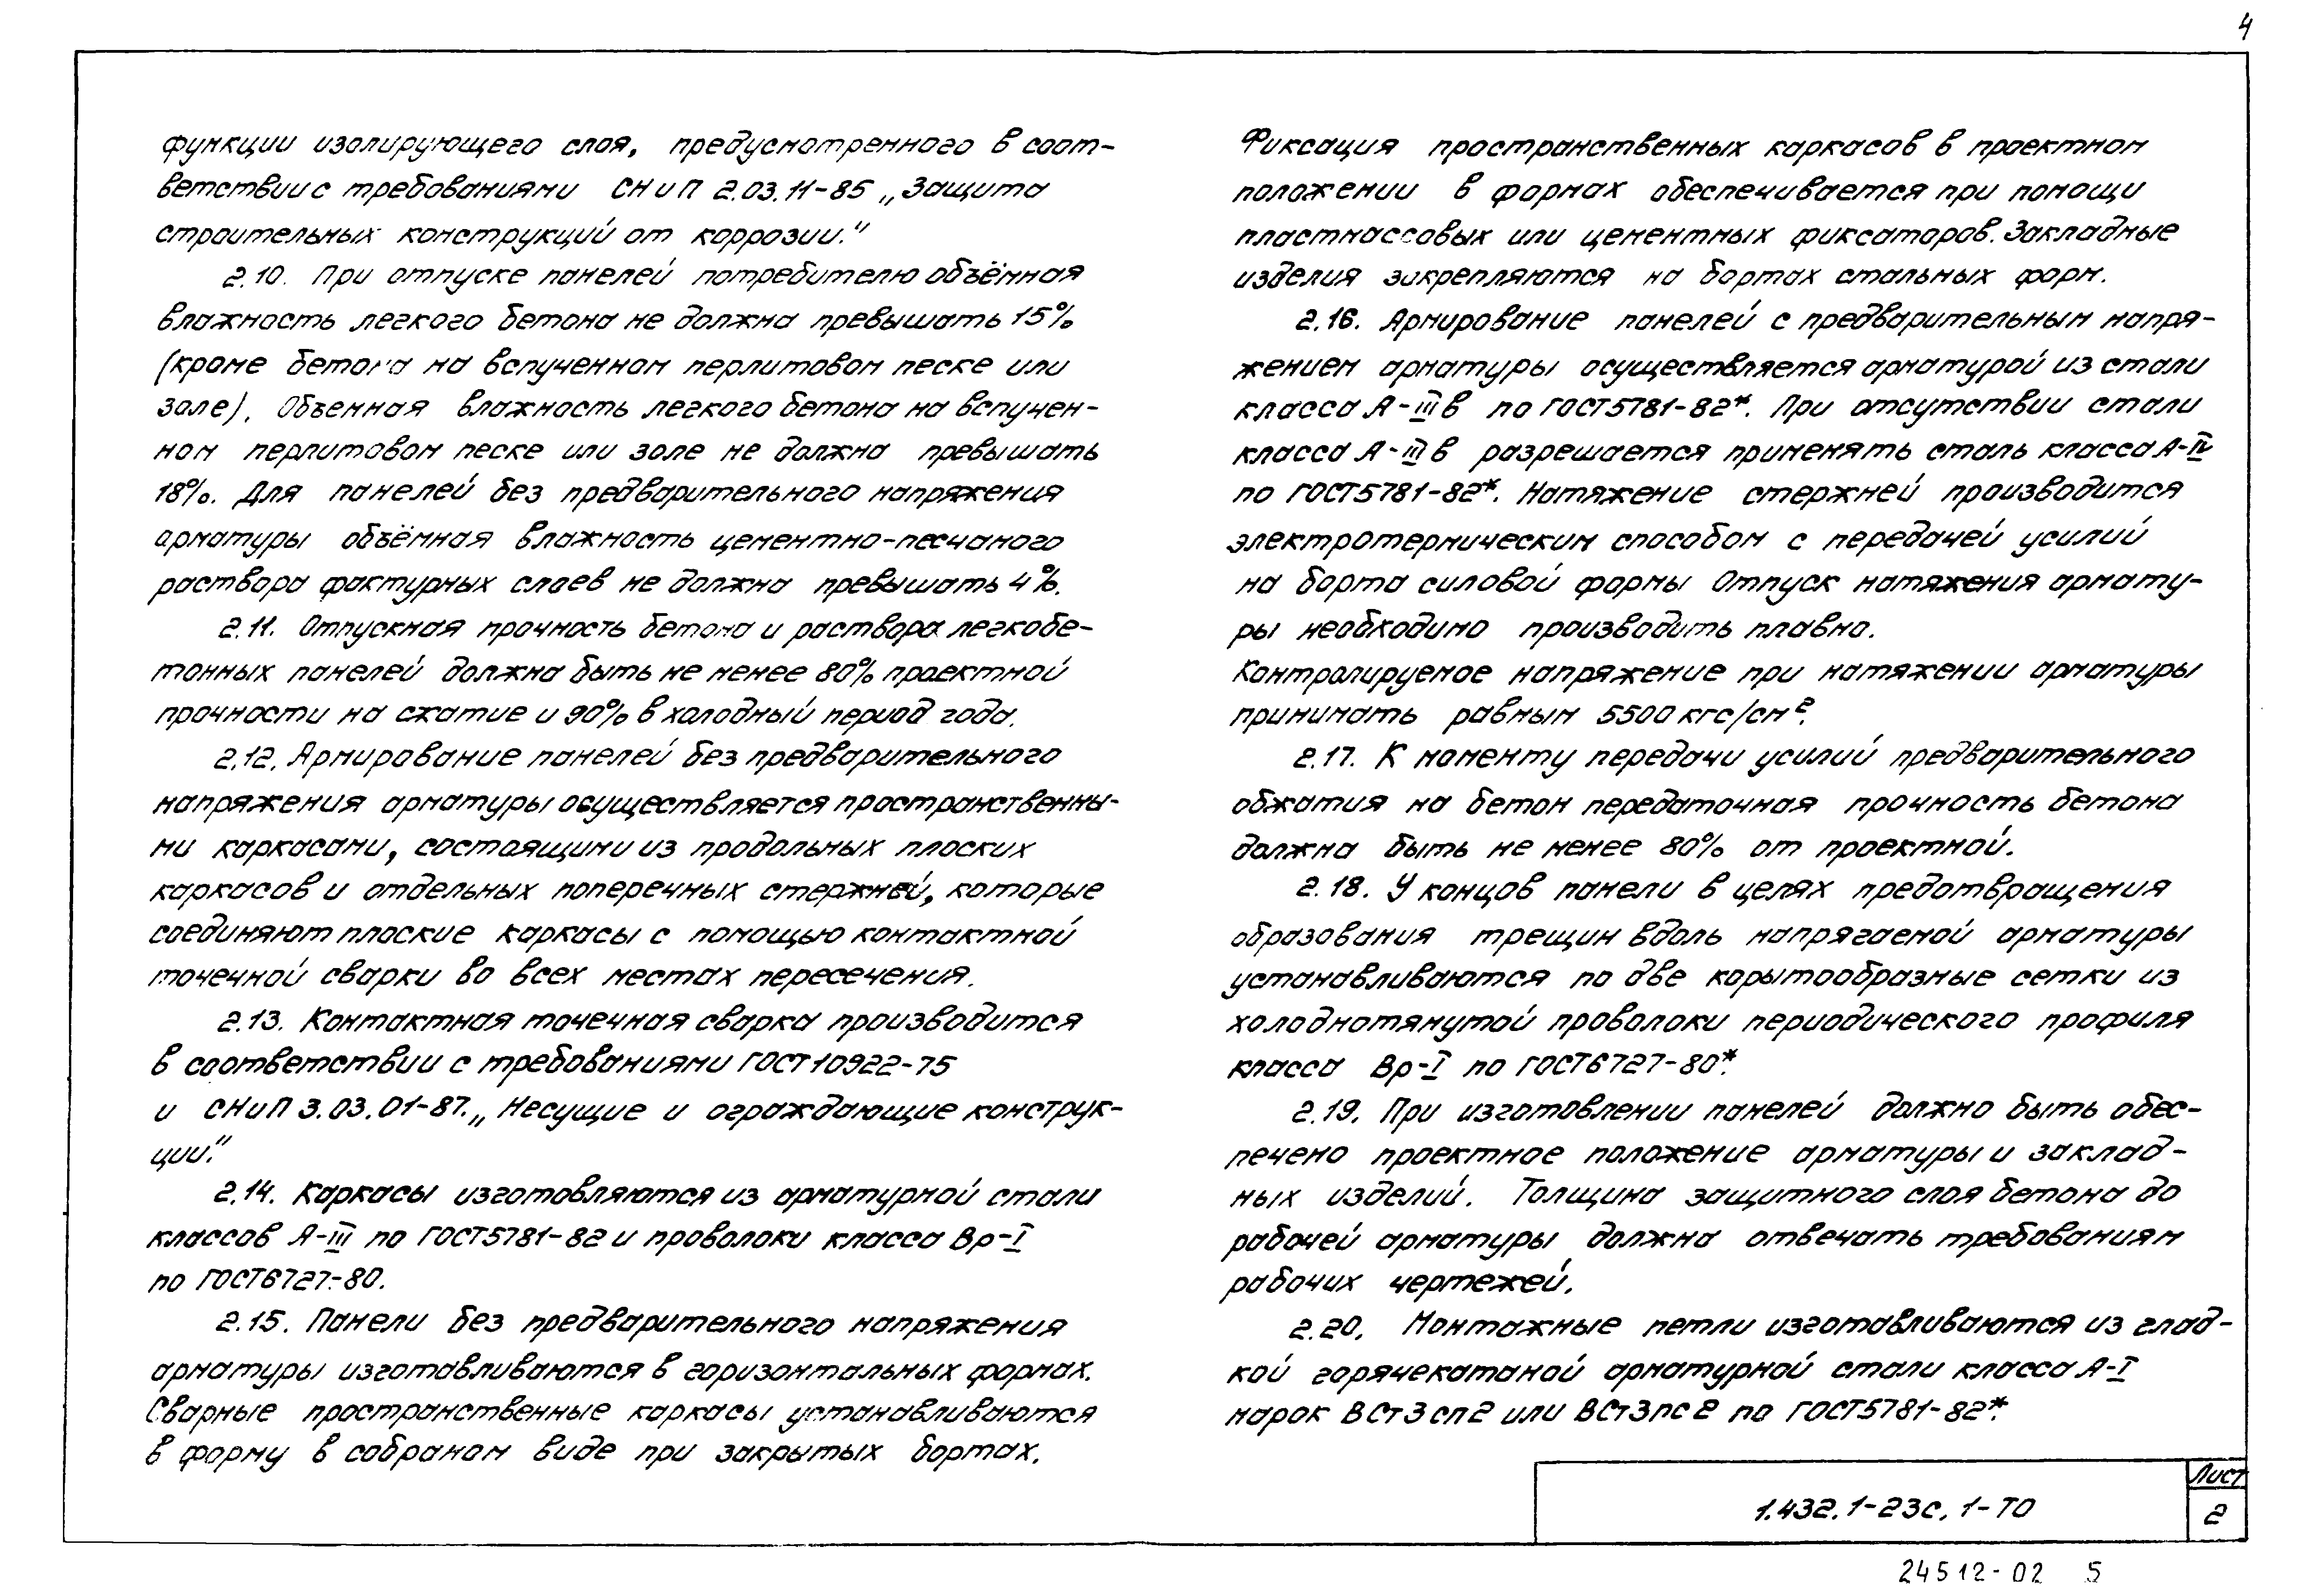 4
функции изолирующего слоя, предусмотренного в соот-
ветствии с требованиями СНиП 2.03.11-85 „Защита
строительных конструкций от коррозии."
2.10. При отпуске панелей потребителю объёмная
влажность легкого бетона не должна превышать 15%
(кроме бетона на вспученном перлитовом песке или
золе). Объемная влажность легкого бетона на вспучен-
ном перлитовом песке или золе не должна превышать
18%. Для панелей без предварительного напряжения
арматуры объёмная влажность цементно-песчаного
раствора фактурных слоев не должна превышать 4%.
2.11. Отпускная прочность бетона и раствора легкобе-
тонных панелей должна быть не менее 80% проектной
прочности на сжатие и 90% в холодный период года.
2.12. Армирование панелей без предварительного
напряжения арматуры осуществляется пространственны-
ми каркасами, состоящими из продольных плоских
каркасов и отдельных поперечных стержней, которые
соединяют плоские каркасы с помощью контактной
точечной сварки во всех местах пересечения.
2.13. Контактная точечная сварка производится
в соответствии с требованиями ГОСТ 10922-75
и СНиП 3.03.01-87. „Несущие и ограждающие конструк-
ции."
2.14. Каркасы изготовляются из арматурной стали
классов А-III по ГОСТ 5781-82 и проволоки класса Вр-I
по ГОСТ 6727-80.
2.15. Панели без предварительного напряжения
арматуры изготавливаются в горизонтальных формах.
Сварные пространственные каркасы устанавливаются
в форму в собраном виде при закрытых бортах.
Фиксация пространственных каркасов в проектном
положении в формах обеспечивается при помощи
пластмассовых или цементных фиксаторов. Закладные
изделия закрепляются на бортах стальных форм.
2.16. Армирование панелей с предварительным напря-
жением арматуры осуществляется арматурой из стали
класса А-IIIв по ГОСТ 5781-82*. При отсутствии стали
класса А-IIIв разрешается применять сталь класса А-IV
по ГОСТ 5781-82*. Натяжение стержней производится
электротермическим способом с передачей усилий
на борта силовой формы Отпуск натяжения армату-
ры необходимо производить плавно.
Контролируемое напряжение при натяжении арматуры
принимать равным 5500 кгс/см².
2.17. К моменту передачи усилий предварительного
обжатия на бетон передаточная прочность бетона
должна быть не менее 80% от проектной.
2.18. У концов панели в целях предотвращения
образования трещин вдоль напрягаемой арматуры
устанавливаются по две корытообразные сетки из
холоднотянутой проволоки периодического профиля
класса Вр-I по ГОСТ 6727-80*.
2.19. При изготовлении панелей должно быть обес-
печено проектное положение арматуры и заклад-
ных изделий. Толщина защитного слоя бетона до
рабочей арматуры должна отвечать требованиям
рабочих чертежей.
2.20. Монтажные петли изготавливаются из глад-
кой горячекатаной арматурной стали класса А-I
марок ВСт3сп2 или ВСт3пс2 по ГОСТ 5781-82*.
1.432.1-23с.1-ТО
Лист
2
24512-02 5